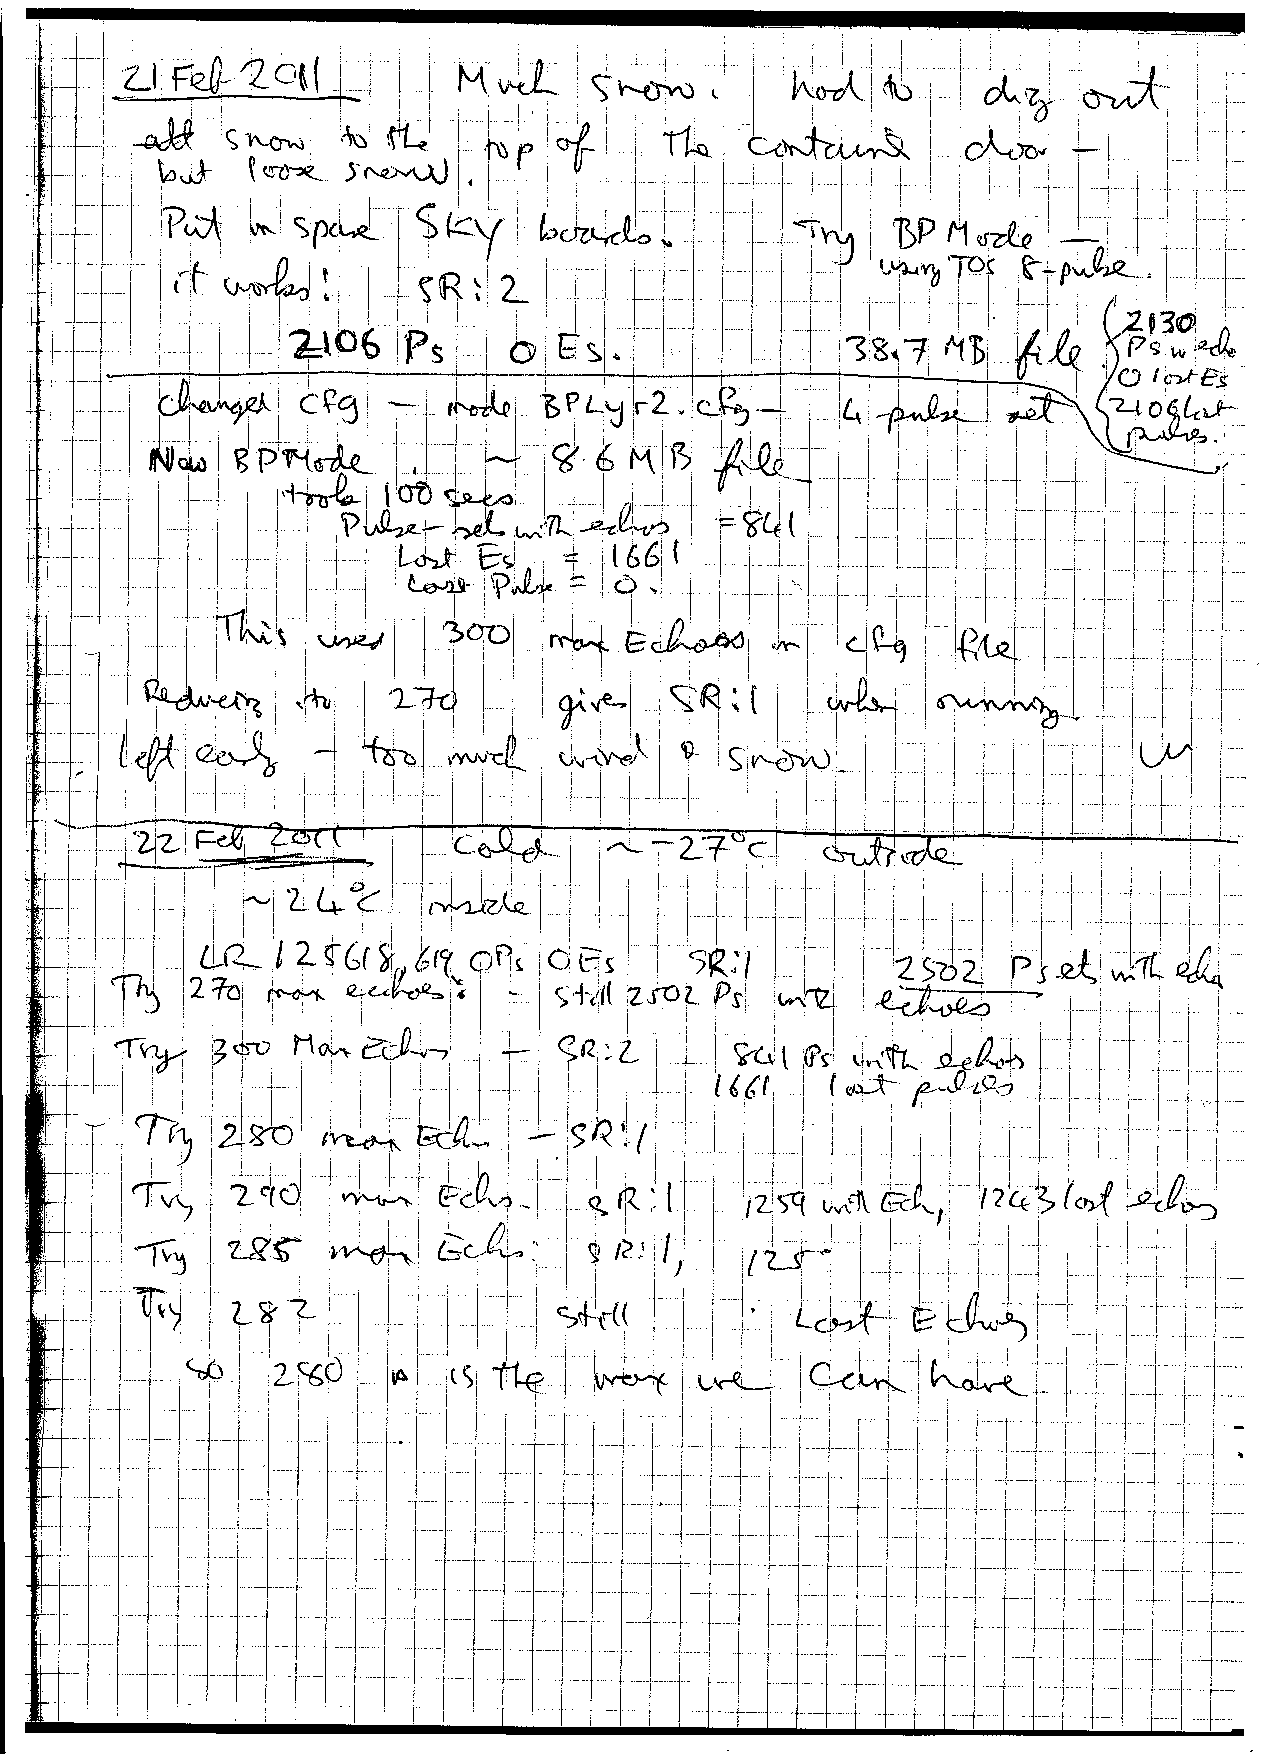 21 Feb 2011 Much snow. had to dig out
all snow to the top of the container door -
but loose snow.
Put in spare SKY boards. Try BP Mode -
using TOS 8-pulse.
it works! SR:2
2106 Ps 0 Es. 38.7 MB file
2130
Ps w echo
0 lost Es
2106 lost
pulses.
Changed cfg - mode BPLyr2.cfg - 4 pulse set
Now BPMode ~ 8.6 MB file
took 100 secs
Pulse-sets with echos = 841
Lost Es = 1661
Lost Pulse = 0.
This used 300 max Echoes in cfg file
Reducing to 270 gives SR:1 when running
left early - too much wind & snow
22 Feb 2011 Cold ~ -27°C outside
~24°C inside
LR 125618,619 0Ps 0Es SR:1 2502 Psets with echo
Try 270 max echoes: - still 2502 Ps with echoes
Try 300 Max Echos - SR:2 841 Ps with echos
1661 lost pulses
Try 280 max Echo - SR:1
Try 290 max Echo. SR:1 1259 with Ech, 1243 lost echos
Try 285 max Echo: SR:1, 125
Try 282 still Lost Echoes
so 280 is the max we can have